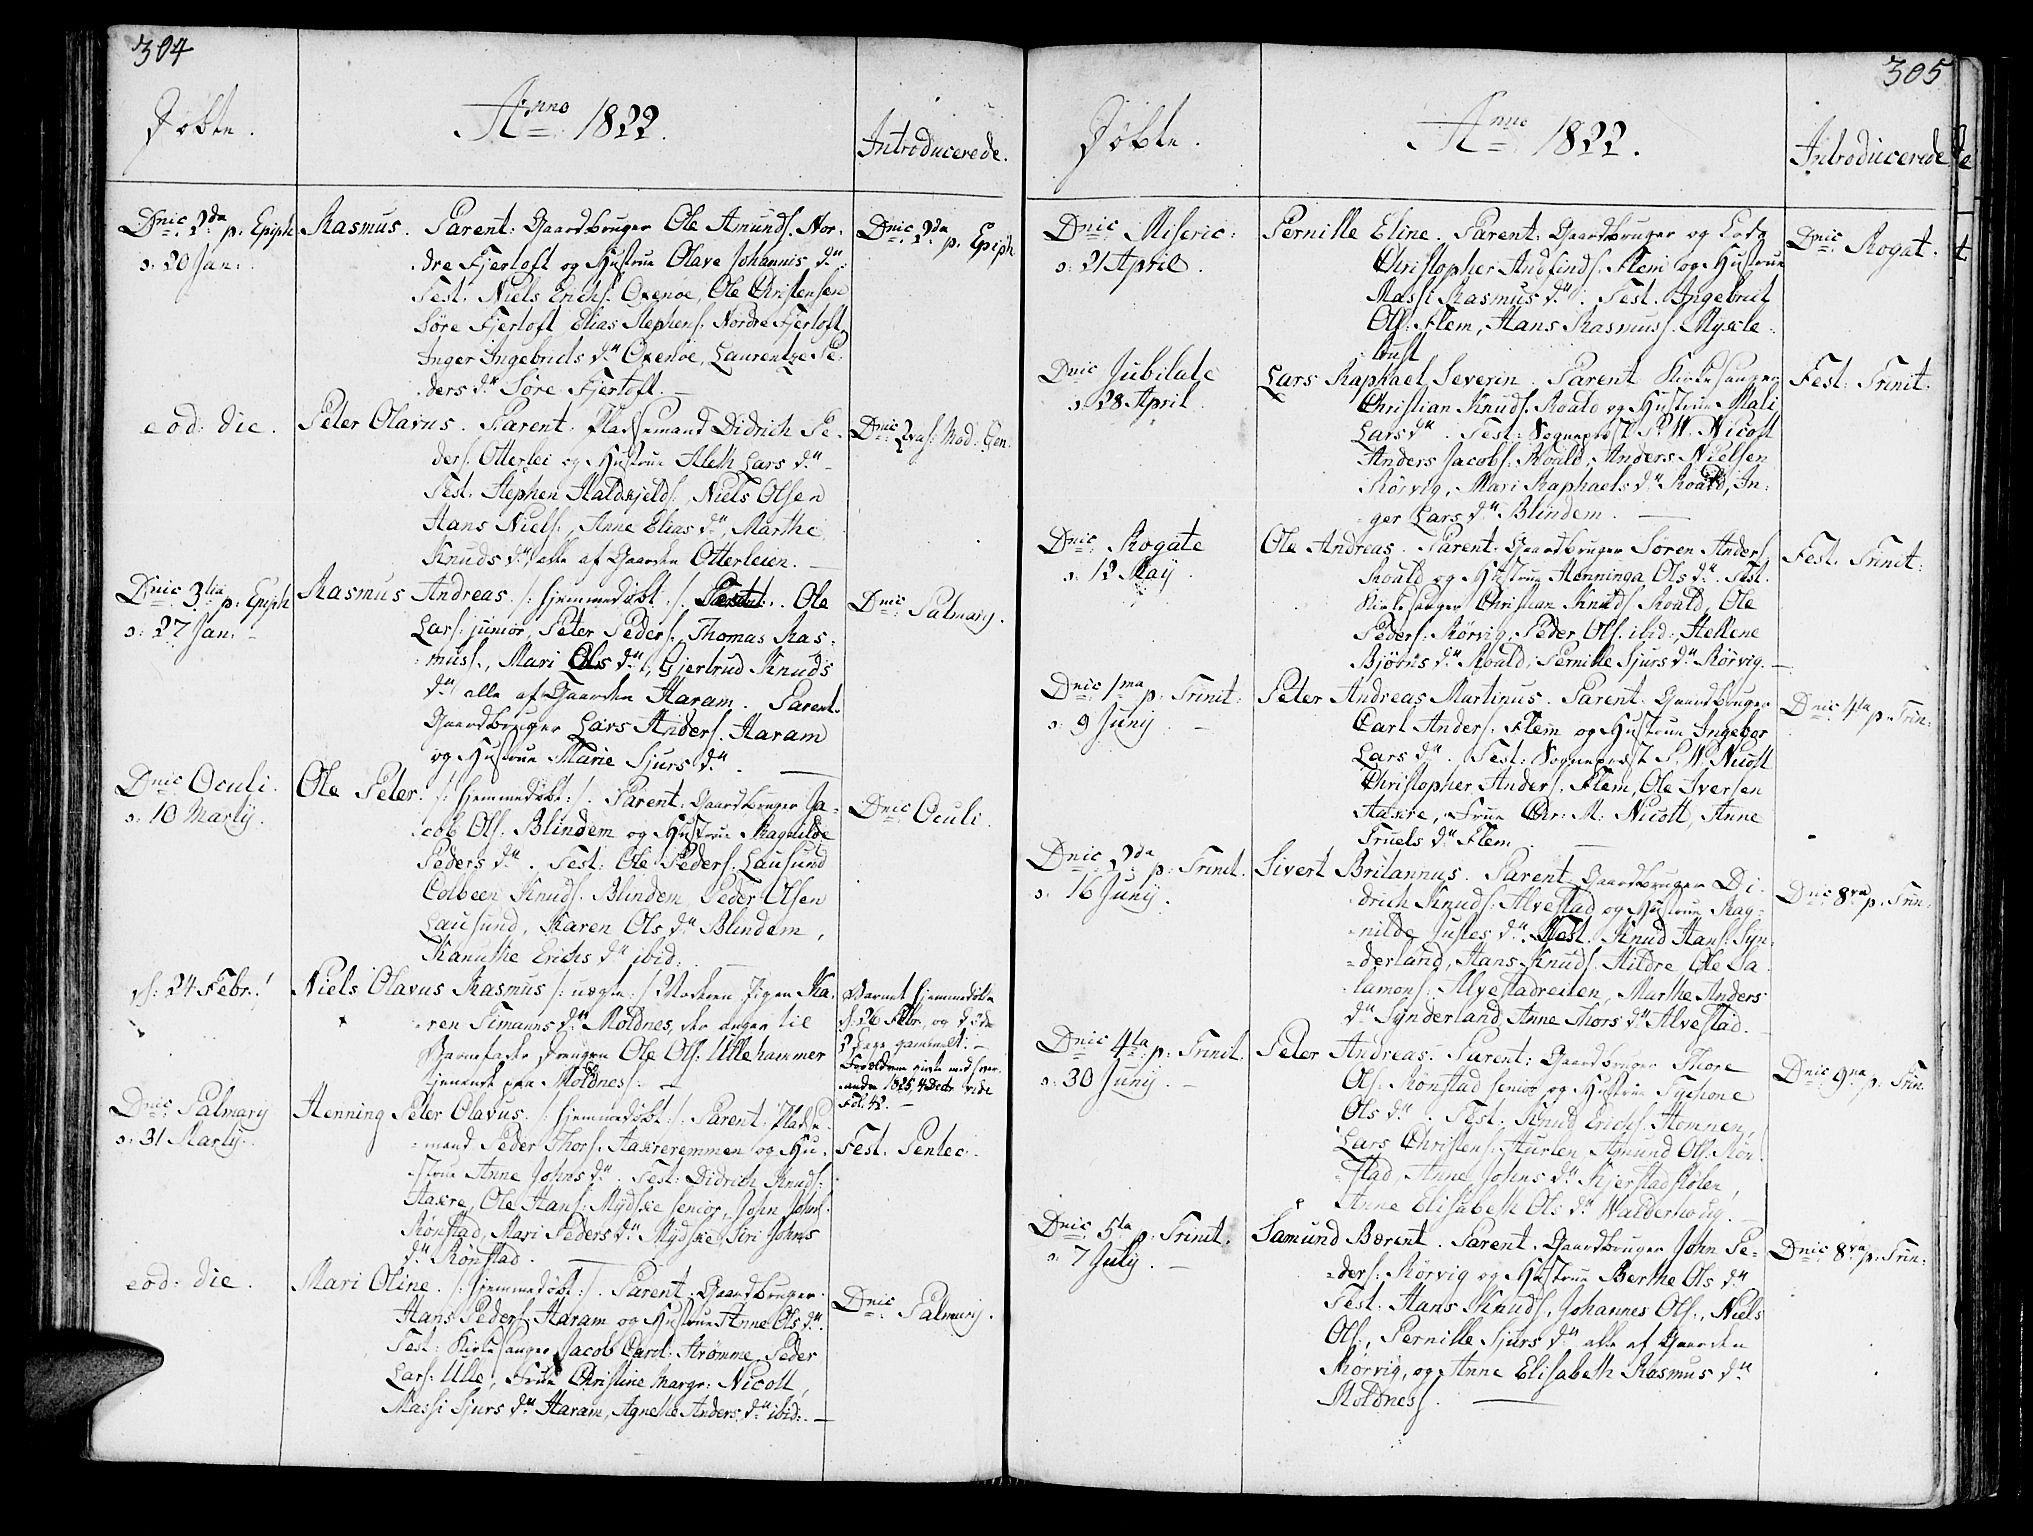 304
Døbte.
Anno 1822.
Introducerede.
Dnic. 2da p. Epiph
ɔ: 20 Jan:
Rasmus. Parent: Gaardbruger Ole Amunds. Nor-
dre Fjertoft og Hustrue Olave Johannis dr.
Test. Niels Erichs. Oxenøe, Ole Christensen
Søre Fjertoft Elias Stephens. Nordre Fjertoft
Inger Ingebrids dr. Oxenöe, Laurentze Pe-
ders dr. Søre Fjertoft. —
Dnic. 2da p. Epiph
eod: die.
Peter Olavus. Parent. Pladsemand Didrich Pe-
ders. Otterlei og Hustrue Aleth Lars dr. —
Test. Stephen Haldkjelds., Niels Olsen
Hans Niels., Anne Elias dr., Marthe
Knuds dr. alle af Gaarden Otterleien. —
Dnic. Qvas: Mod. Gen.
Dnic. 3tia p. Epiph
ɔ: 27 Jan: —
Rasmus Andreas /: hjemmedøbt :/. Test:. Ole
Lars. junior, Peter Peders., Thomas Ras-
mus., Mari Ols dr., Gjertrud Knuds
dr. alle af Gaarden Haram. Parent.
Gaardbruger Lars Anders. Haram
og Hustrue Marie Sjurs dr. —
Dnic. Palmarij.
Dnic Oculi.
ɔ: 10 Martij.
Ole Peter. /: hjemmedøbt :/. Parent: Gaardbruger Ja-
cob Ols. Blindem og Hustrue Ragnilde
Peders dr. Test: Ole Peders. Lausund
Colbeen Knuds. Blindem, Peder Olsen
Lausund, Karen Ols dr. Blindem,
Kanuthe Erichs dr. ibid:
Dnic. Oculi.
d. 24 Febr.
Niels Olavus Rasmus /: uægte :/ Moderen Pigen Ka-
ren Simanns dr. Moldnes, der angav til
Barnefader Drengen Ole Ols. Ullehammer
tjenende paa Moldnes. —
Barnet hjemmedøbt
d. 26 Febr., og døde
gammelt. —
Forældrene givte med hver-
andre 1825, 4 Decbr vide
Fol. 42. —
Dnic. Palmarij
ɔ: 31 Martij.
Henning Peter Olavus. /: hjemmedøbt :/. Parent: Pladse-
mand Peder Thors. Aakreremmen og Hu-
strue Anne Johns dr. Test: Didrich Knuds:
Aakre, Ole Hans. Mydske senior, John Johns.
Rönstad, Mari Peders dr. Mydske, Siri Johns
dr. Rönstad. —
Fest. Pentec:
eod: die.
Mari Oline. /: hjemmedøbt :/. Parent: Gaardbruger
Hans Peders. Haram og Hustrue Anne Ols dr.
Test. Kirkesanger Jacob Carol: Strømme, Peder
Lars: Ulle, Frue Christine Margr: Nicoll,
Massi Sjurs dr. Haram, Agnethe Anders dr. ibid: —
Dnic. Palmarij.
305
Døbte.
Anno 1822.
Introducerede
Dnic. Miseric:
ɔ: 21 April.
Pernille Eline. Parent: Gaardbruger og Lods
Christopher Andfinds. Flem og Hustrue
Massi Rasmus dr. Test. Ingebrit
Ols. Flem, Hans Rasmuss. Myskle-
bust
Dnic. Rogat.
Dnic Jubilate
ɔ: 28 April.
Lars Raphael Severin. Parent Kirkesanger
Christian Knuds. Roald og Hustrue Mali
Lars dr. Test: Sogneprest P. W. Nicoll
Anders Jacobs. Roald, Anders Nielsen
Rörvig, Mari Raphaels dr. Roald, In-
ger Lars dr. Blindem. —
Fest. Trinit.
Dnic. Rogate
ɔ: 12 May.
Ole Andreas. Parent. Gaardbruger Søren Anders.
Roald og Hustrue Henninga Ols dr. Test.
Kirkesanger Christian Knuds. Roald, Ole
Peders. Rörvig, Peder Ols. ibid: Hellene
Bjørns dr. Roald, Pernille Sjurs dr. Rörvig. —
Fest. Trinit.
Dnic. 1ma p. Trinit.
ɔ: 9 Junij. —
Peter Andreas Martinus. Parent. Gaardbruger
Carl Anders. Flem og Hustrue Ingebor
Lars dr. Test: Sogneprest P. W. Nicoll
Christopher Anders. Flem, Ole Iversen
Aakre, Frue Chr: M: Nicoll, Anne
Truels dr. Flem —
Dnic. 4ta p. Trin:
Dnic. 2da p. Trinit.
ɔ: 16 Junij.
Sivert Britannus. Parent. Gaardbruger Di-
drich Knuds. Alvestad og Hustrue Rag-
nilde Justes dr. Test. Knud Hans. Syn-
derland, Hans Knuds. Hildre Ole Sa-
lamons. Alvestadreiten, Marthe Anders
dr. Synderland, Anne Thors dr. Alvestad. —
Dnic 8va p. Trin:
Dnic. 4ta p. Trinit.
ɔ: 30 Junij. —
Peter Andreas. Parent: Gaardbruger Thore
Ols. Rönstad senior og Hustrue Sychone
Ols dr. Test. Knud Erichs. Homnen,
Lars Christens. Hurlen, Amund Ols. Rön-
stad, Anne Johns dr. Kjerstad
Anne Elisabeth Ols dr. Walderhoug. —
Dnic. 9na p. Trin:
Dnic. 5ta p. Trinit.
ɔ: 7 July. —
Samund Bærent. Parent. Gaardbruger John Pe-
ders. Rörvig og Hustrue Berthe Ols dr.
Test. Hans Knuds., Johannes Ols., Niels
Ols., Pernille Sjurs dr. alle af Gaarden
Rörvig, og Anne Elisabeth Rasmus dr.
Moldnes. —
Dnic. 8va p. Trin: